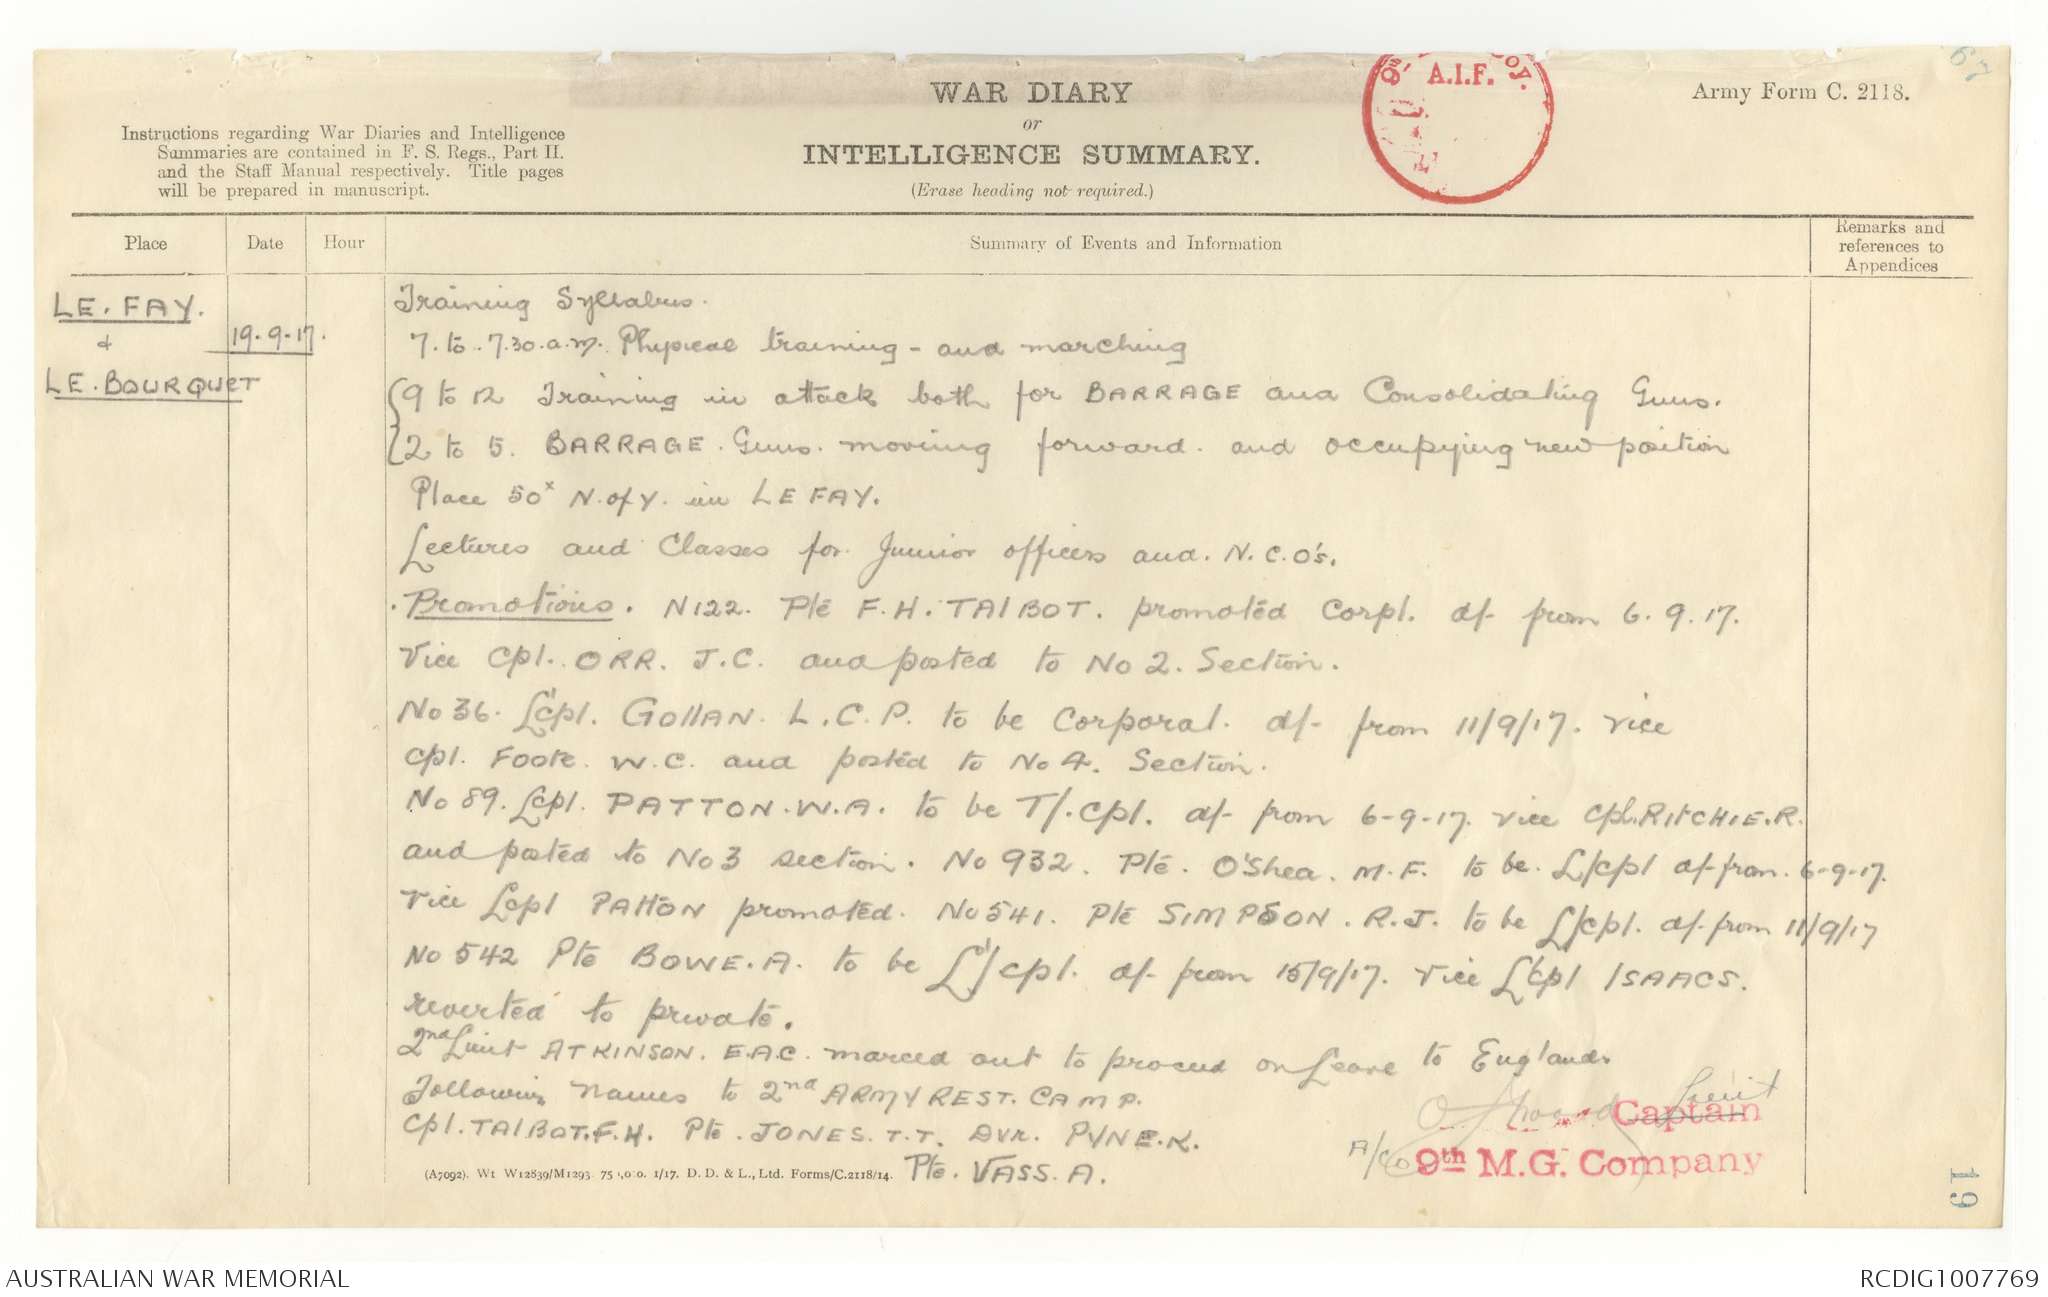 67
WAR DIARY
or
INTELLIGENCE SUMMARY.
(Erase heading not required.)
A.I.F.
Army Form C. 2118.
Instructions regarding War Diaries and Intelligence
Summaries are contained in F. S. Regs., Part II.
and the Staff Manual respectively. Title pages
will be prepared in manuscript.
Place
Date
Hour
Summary of Events and Information
Remarks and
references to
Appendices
LE. FAY.
&
LE. BOURQUET
19.9.17.
Training Syllabus.
7. to 7.30. a.m. Physical training - and marching
9 to 12 Training in attack both for BARRAGE and Consolidating Guns.
2 to 5. BARRAGE. Guns. moving forward. and occupying new position
Place 50x N. of Y. in LE FAY.
Lectures and Classes for Junior officers and. N.C.O's.
Promotions. N122. Pte F.H. TALBOT. promoted Corpl. d/- from 6.9.17.
Vice Cpl. ORR. J.C. and posted to No 2. Section.
No 36. L/cpl. GOLLAN. L.C.P. to be Corporal. d/- from 11/9/17. vice
Cpl. Foote. W.C. and posted to No 4. Section.
No 89. L/cpl. PATTON. W.A. to be T/. Cpl. d/- from 6-9-17. vice Cpl. RITCHIE. R.
and posted to No 3 section. No 932. Pte. O'Shea. M.F. to be. L/cpl d/- from. 6-9-17.
Vice L/cpl PATTON promoted. No 541. Pte SIMPSON. R.J. to be L/cpl. d/- from 11/9/17
No 542 Pte BOWE. A. to be L/cpl. d/- from 15/9/17. Vice L/cpl ISAACS.
reverted to private.
2nd Lieut ATKINSON. E.A.C. marced out to proceed on Leave to England.
Following names to 2nd ARMY REST. CAMP.
Cpl. TALBOT. F.H. Pte. JONES. T.T. Dvr. PYNE. K.
Pte. VASS. A.
Lieut
Captain
A/Co
9th M.G. Company
(A7092). Wt W12839/M1293. 75 ,0 o. 1/17. D. D. & L., Ltd. Forms/C.2118/14.
19
AUSTRALIAN WAR MEMORIAL
RCDIG1007769